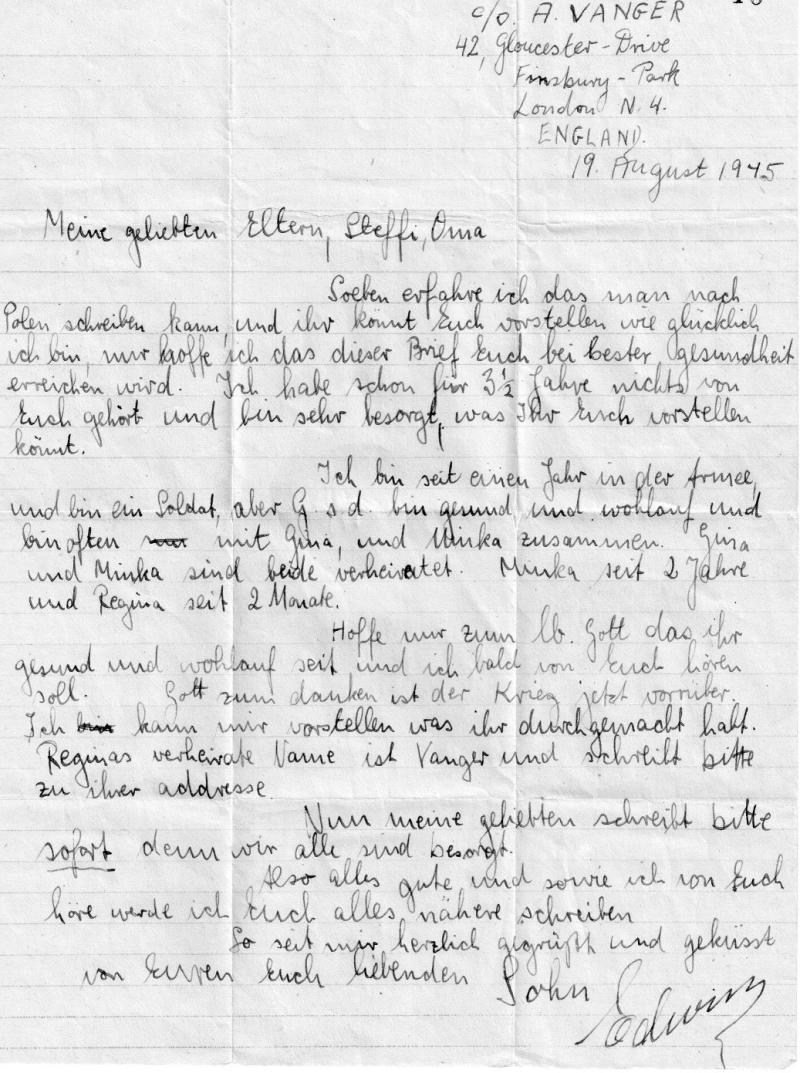 c/o. A. VANGER
42, Gloucester-Drive
Finsbury-Park
London N. 4.
ENGLAND.
19. August 1945
Meine geliebten Eltern, Steffi, Oma
Soeben erfahre ich das man nach
Polen schreiben kann, und ihr könnt Euch vorstellen wie glücklich
ich bin, nur hoffe ich das dieser Brief Euch bei bester gesundheit
erreichen wird. Ich habe schon für 3½ Jahre nichts von
Euch gehört und bin sehr besorgt, was Ihr Euch vorstellen
könnt.
Ich bin seit einen Jahr in der Armee,
und bin ein Soldat, aber G. s. d. bin gesund und wohlauf und
bin often mit Gina, und Minka zusammen. Gina
und Minka sind beide verheiratet. Minka seit 2 Jahre
und Regina seit 2 Monate.
Hoffe nur zum lb. Gott das ihr
gesund und wohlauf seit und ich bald von Euch hören
soll. Gott zum danken ist der Krieg jetzt vorrüber.
Ich kann mir vorstellen was ihr durchgemacht habt.
Reginas verheirate Name ist Vanger und schreibt bitte
zu ihrer addresse.
Nun meine geliebten schreibt bitte
sofort denn wir alle sind besorgt.
Also alles gute und sowie ich von Euch
höre werde ich Euch alles nähere schreiben
So seit mir herzlich gegrüßt und geküsst
von Euren Euch liebenden Sohn
Edwin